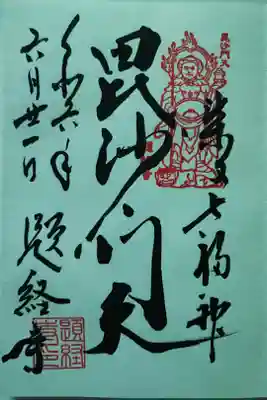 柴又七福神
毘沙門天
令和六年
六月廿一日
題経寺